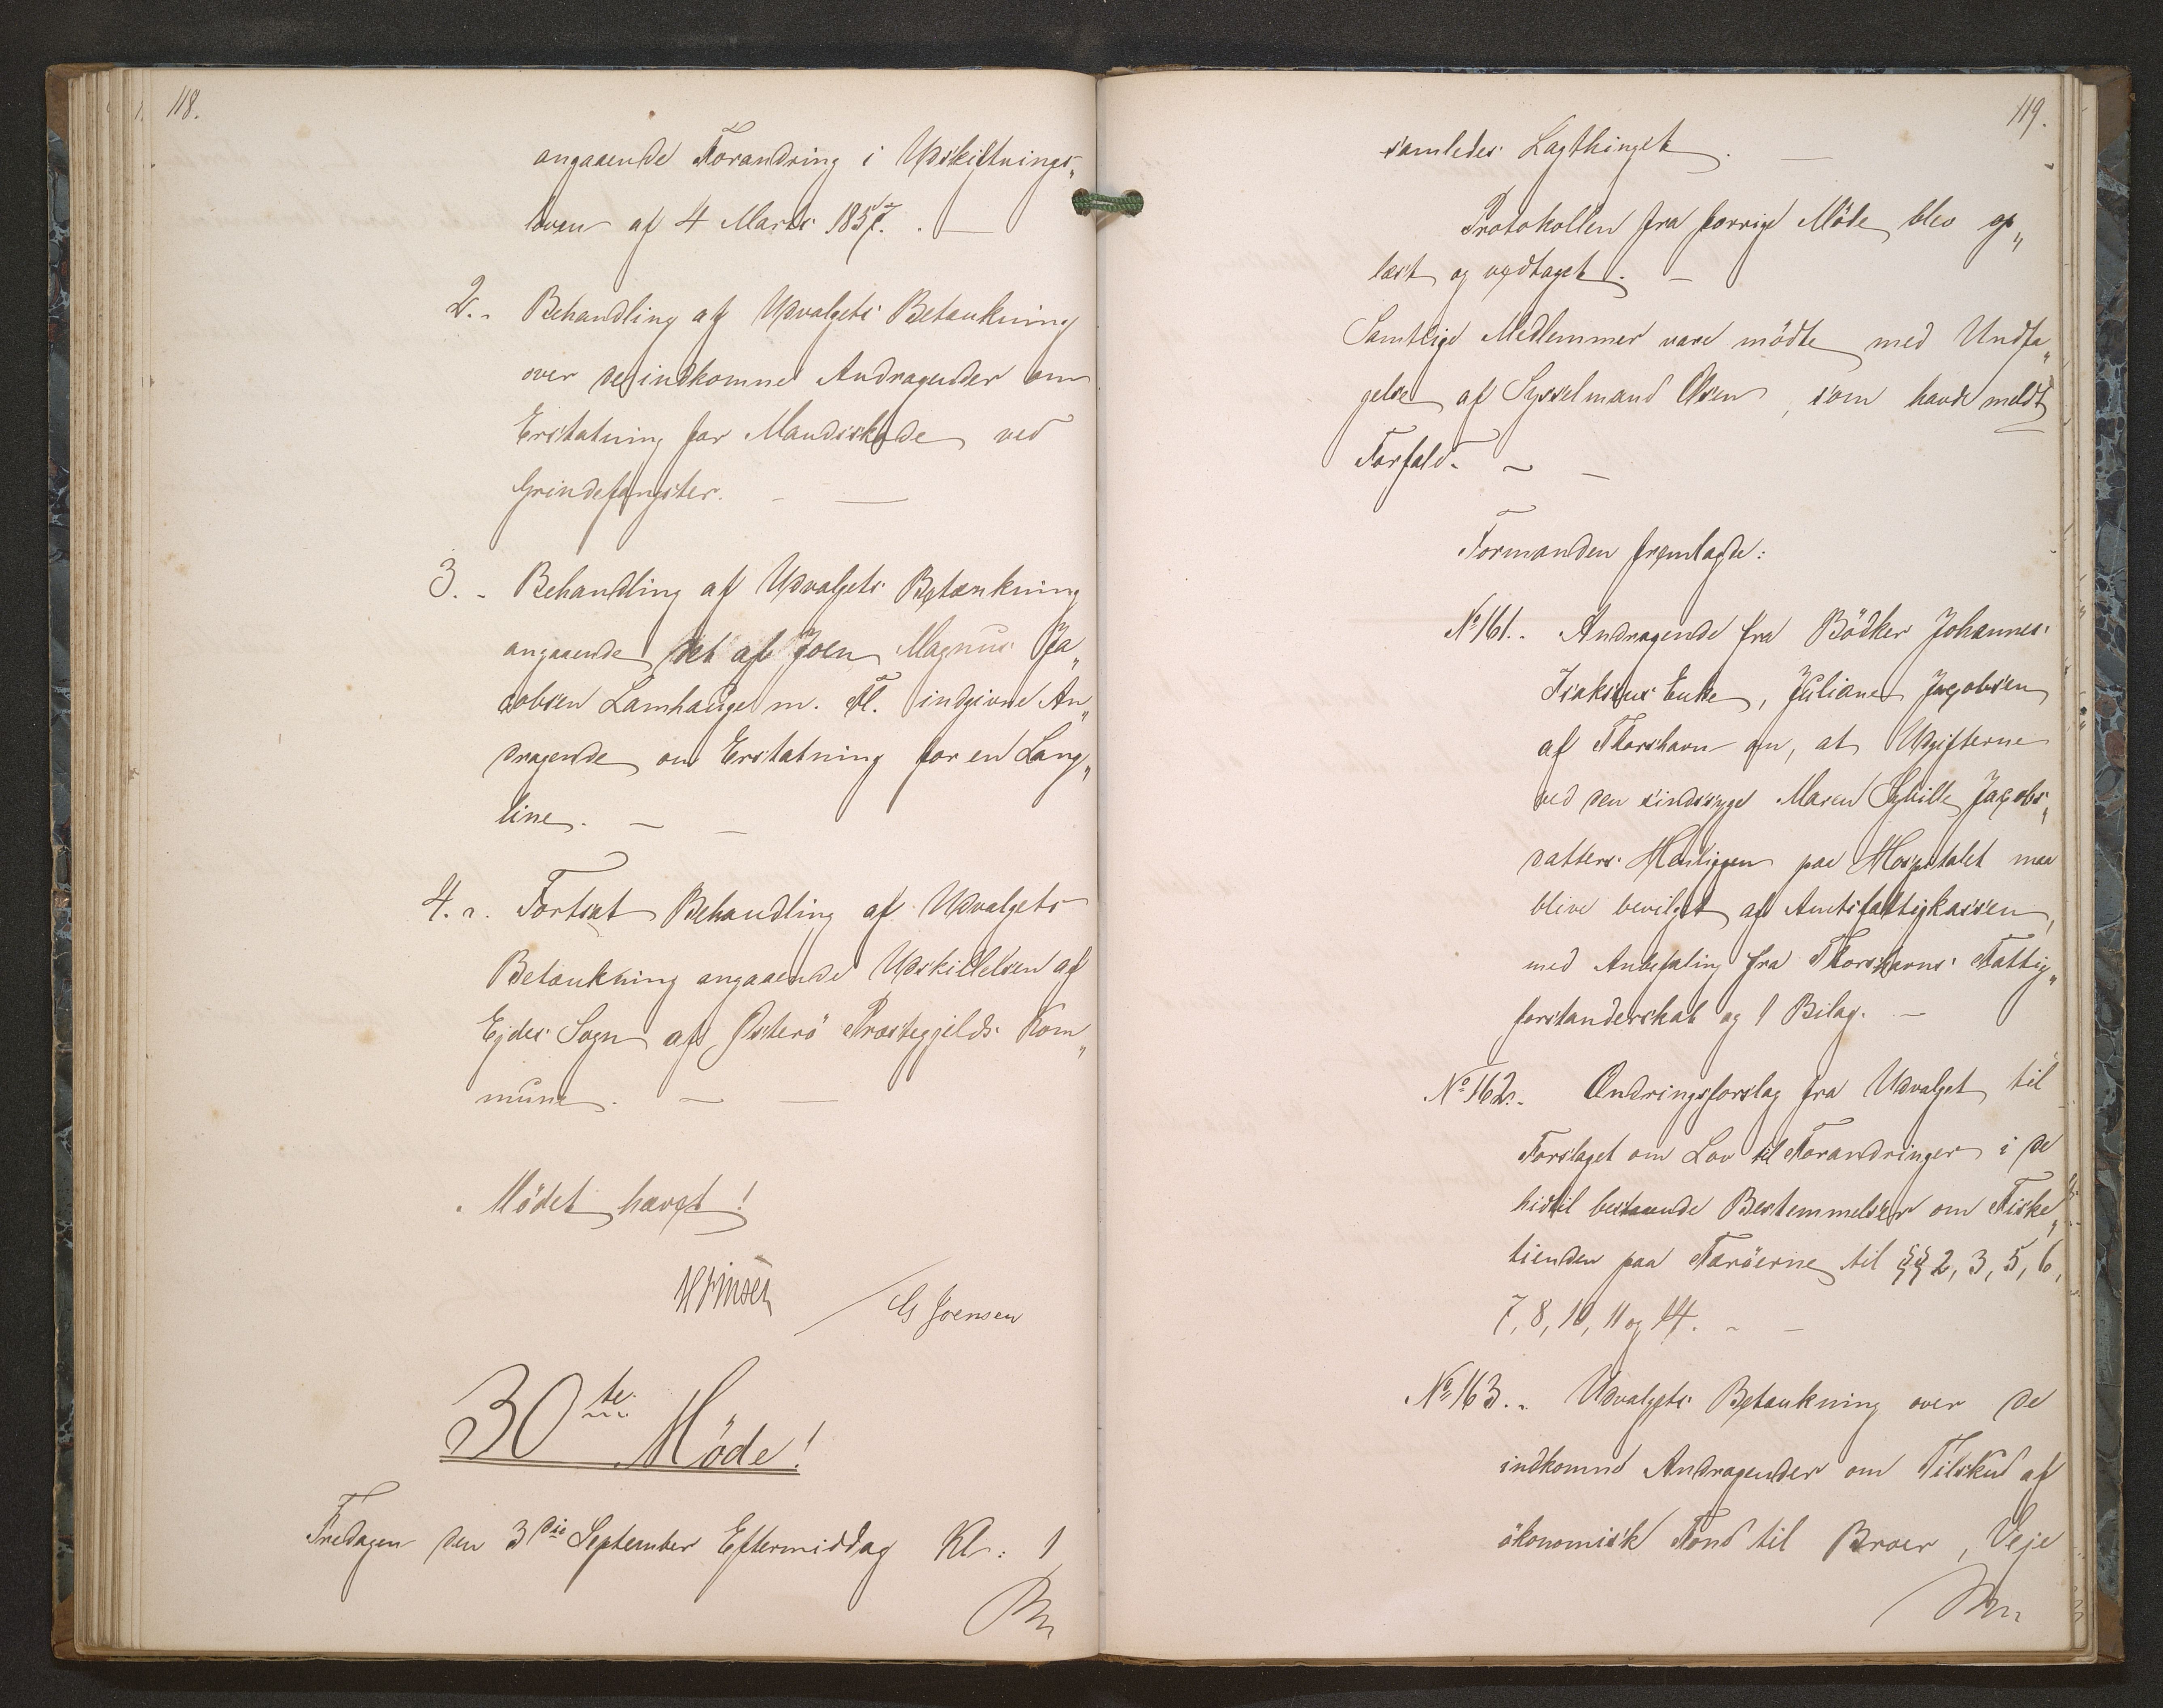 118.
angaaende Forandring i Udskiftnings„
loven af 4 Marts 1857. —
2. Behandling af Udvalgets Betænkning
over de indkomne Andragender om
Erstatning for Mandsskade ved
Grindefangster. —
3. Behandling af Udvalgets Betænkning
angaaende det af Joen Magnus Ja„
cobsen Lamhauge m. Fl. indgivne An„
dragende om Erstatning for en Lang„
line. —
4. Fortsat Behandling af Udvalgets
Betænkning angaaende Udskillelsen af
Ejdes Sogn af Østerö Præstegjelds Kom„
mune. —
Mödet hævet!
G Joensen
30te Möde!
Fredagen den 3die September Eftermiddag Kl: 1
119.
samledes Lagthinget. —
Protokollen fra forrige Möde blev op„
læst og vedtaget. —
Samtlige Medlemmer vare mödte med Undta„
gelse af Sysselmand Olsen, som havde meldt
Forfald. —
Formanden fremlagde:
No 161. Andragende fra Bödker Johannes
Isaksens Enke, Juliane Jacobsen
af Thorshavn om, at Udgifterne
ved den sindssyge Maren Sybille Jacobs„
datters Henliggen paa Hospitalet maa
blive bevilget af Amtsfattigkassen,
med Anbefaling fra Thorshavns Fattig„
forstanderskab og 1 Bilag. —
No 162. Ændringsforslag fra Udvalget til
Forslaget om Lov til Forandringer i de
hidtil bestaaende Bestemmelser om Fiske„
tienden paa Færöerne til §§ 2, 3, 5, 6,
7, 8, 10, 11 og 14. —
No 163. Udvalgets Betænkning over de
indkomne Andragender om Tilskud af
ökonomisk Fond til Broer, Veje